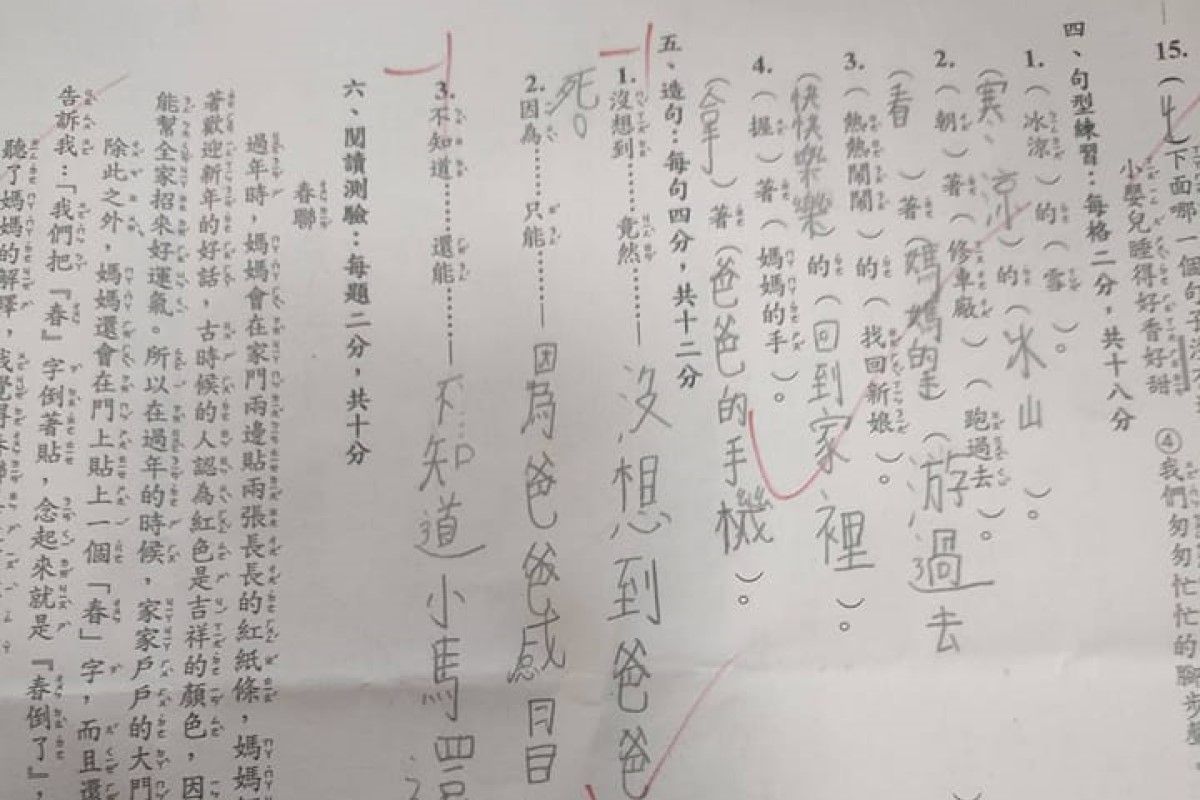 15.(4)下面哪一個句子
小嬰兒睡得好香好甜
④我們匆匆忙忙的
四、句型練習：每格二分，共十八分
1.（冰涼）的（雪）。
（寒、涼）的（冰山）。
2.（朝）著（修車廠）（跑過去）。
（看）著（媽媽的走）（游過去
3.（熱熱鬧鬧）的（找回新娘）。
（快快樂樂）的（回到家裡）。
4.（握）著（媽媽的手）。
（拿）著（爸爸的手機）。
五、造句：每句四分，共十二分
1.沒想到……竟然……｜沒想到爸爸
死。
2.因為……只能……｜因為爸爸感冒
3.不知道……還能……｜不知道小馬
六、閱讀測驗：每題二分，共十分
春聯
過年時，媽媽會在家門兩邊貼兩張長長的紅紙條，媽媽
著歡迎新年的好話，古時候的人認為紅色是吉祥的顏色，因
能幫全家招來好運氣。所以在過年的時候，家家戶戶的大門
除此之外，媽媽還會在門上貼上一個「春」字，而且還
告訴我：「我們把『春』字倒著貼，念起來就是『春倒了』，
聽了媽媽的解釋，我覺得春聯